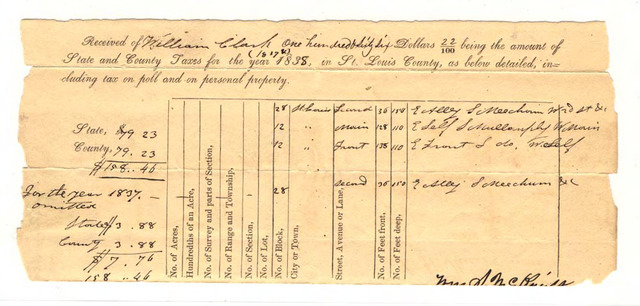 Received of William Clark One hundred & sixty six Dollars 22/100 being the amount of
(1878)
State and County Taxes for the year 1838, in St. Louis County, as below detailed, in-
cluding tax on poll and on personal property.
State, $79 23
County, 79. 23
$158.. 46
For the year 1837. —
omitted
State $3 . 88
County 3 . 88
$7 . 76
158 .. 46
No. of Acres,
Hundredths of an Acre,
No. of Survey and parts of Section,
No. of Range and Township,
No. of Section,
No. of Lot,
No. of Block,
City or Town.
Street, Avenue or Lane,
No. of Feet front,
No. of Feet deep,
28 St Louis Second 36 150 E Alley S Meechum W 2d St &c
12 " Main 128 110 E Self S Mullanphy W Main
12 " Front 138 110 E Front S do. W Self
28 Second 36 150 E Alley S Meechum &c